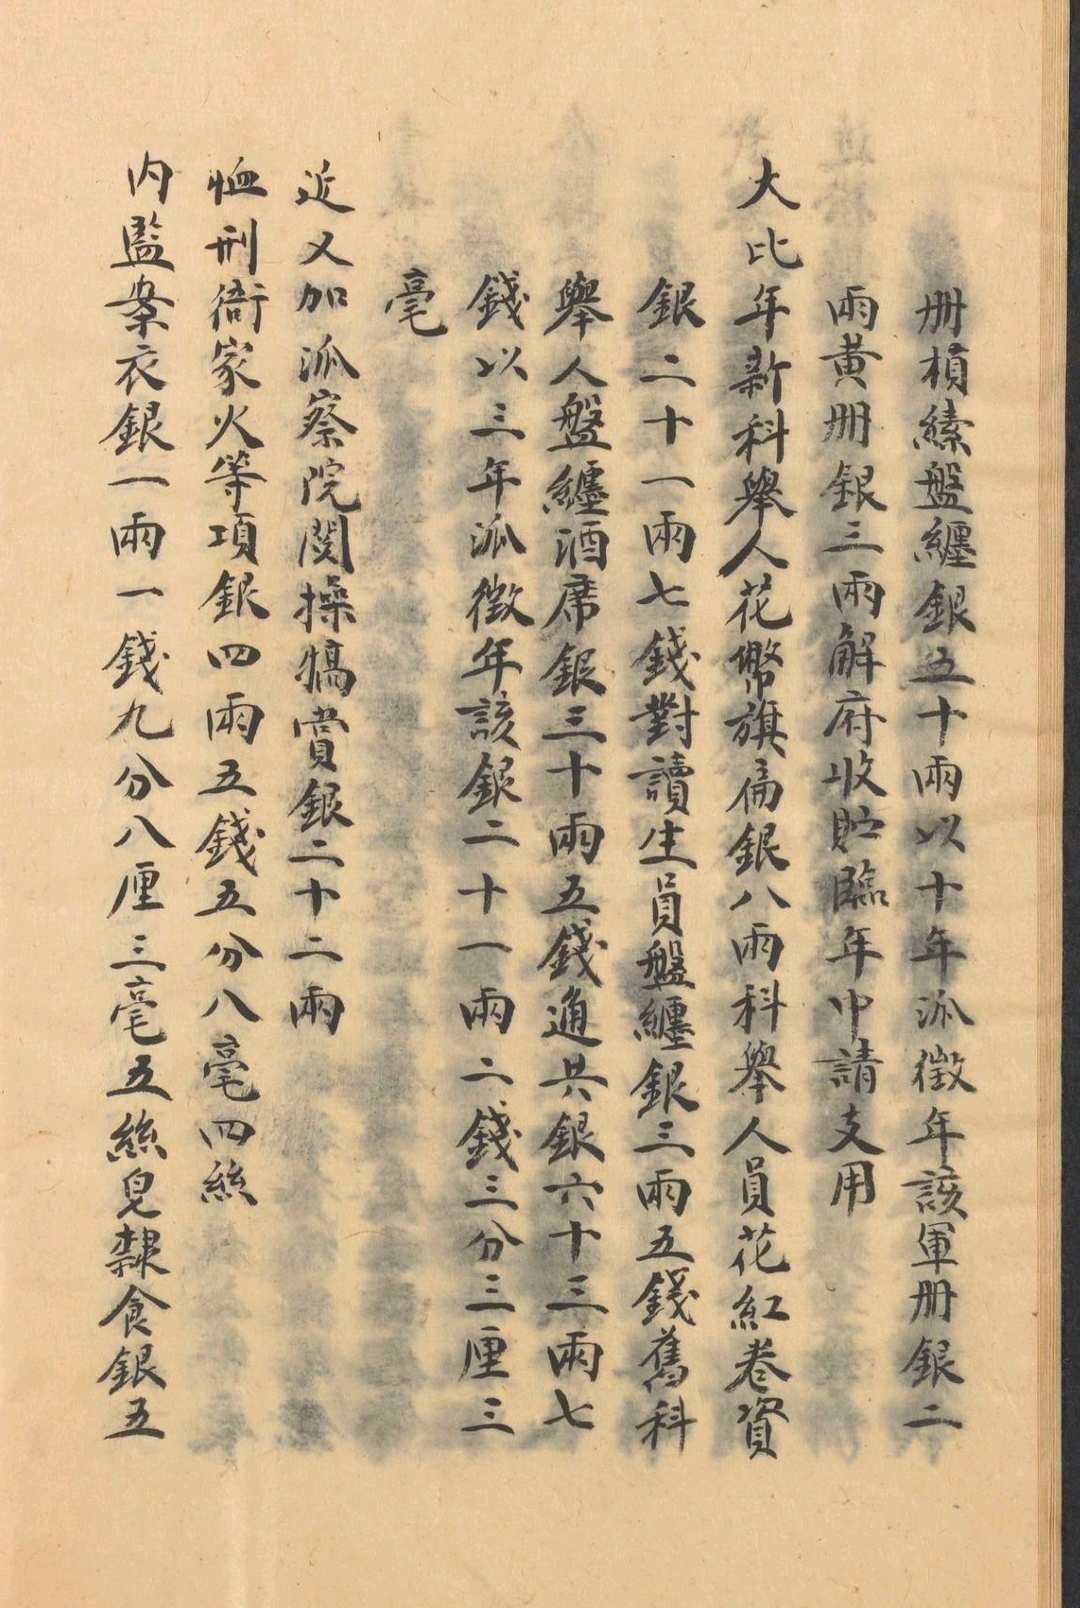 册槓縤盤纏銀五十兩以十年派徵年該軍册銀二
兩黄册銀三兩解府收貯臨年申請支用
大比年新科舉人花幣旗扁銀八兩科舉人員花紅卷資
銀二十一兩七錢對讀生員盤纏銀三兩五錢舊科
舉人盤纏酒席銀三十兩五錢通共銀六十三兩七
錢以三年派徵年該銀二十一兩二錢三分三厘三
毫
近又加派察院閱操犒賞銀二十二兩
恤刑衙家火等項銀四兩五錢五分八毫四絲
内監案衣銀一兩一錢九分八厘三毫五絲皂隸食銀五